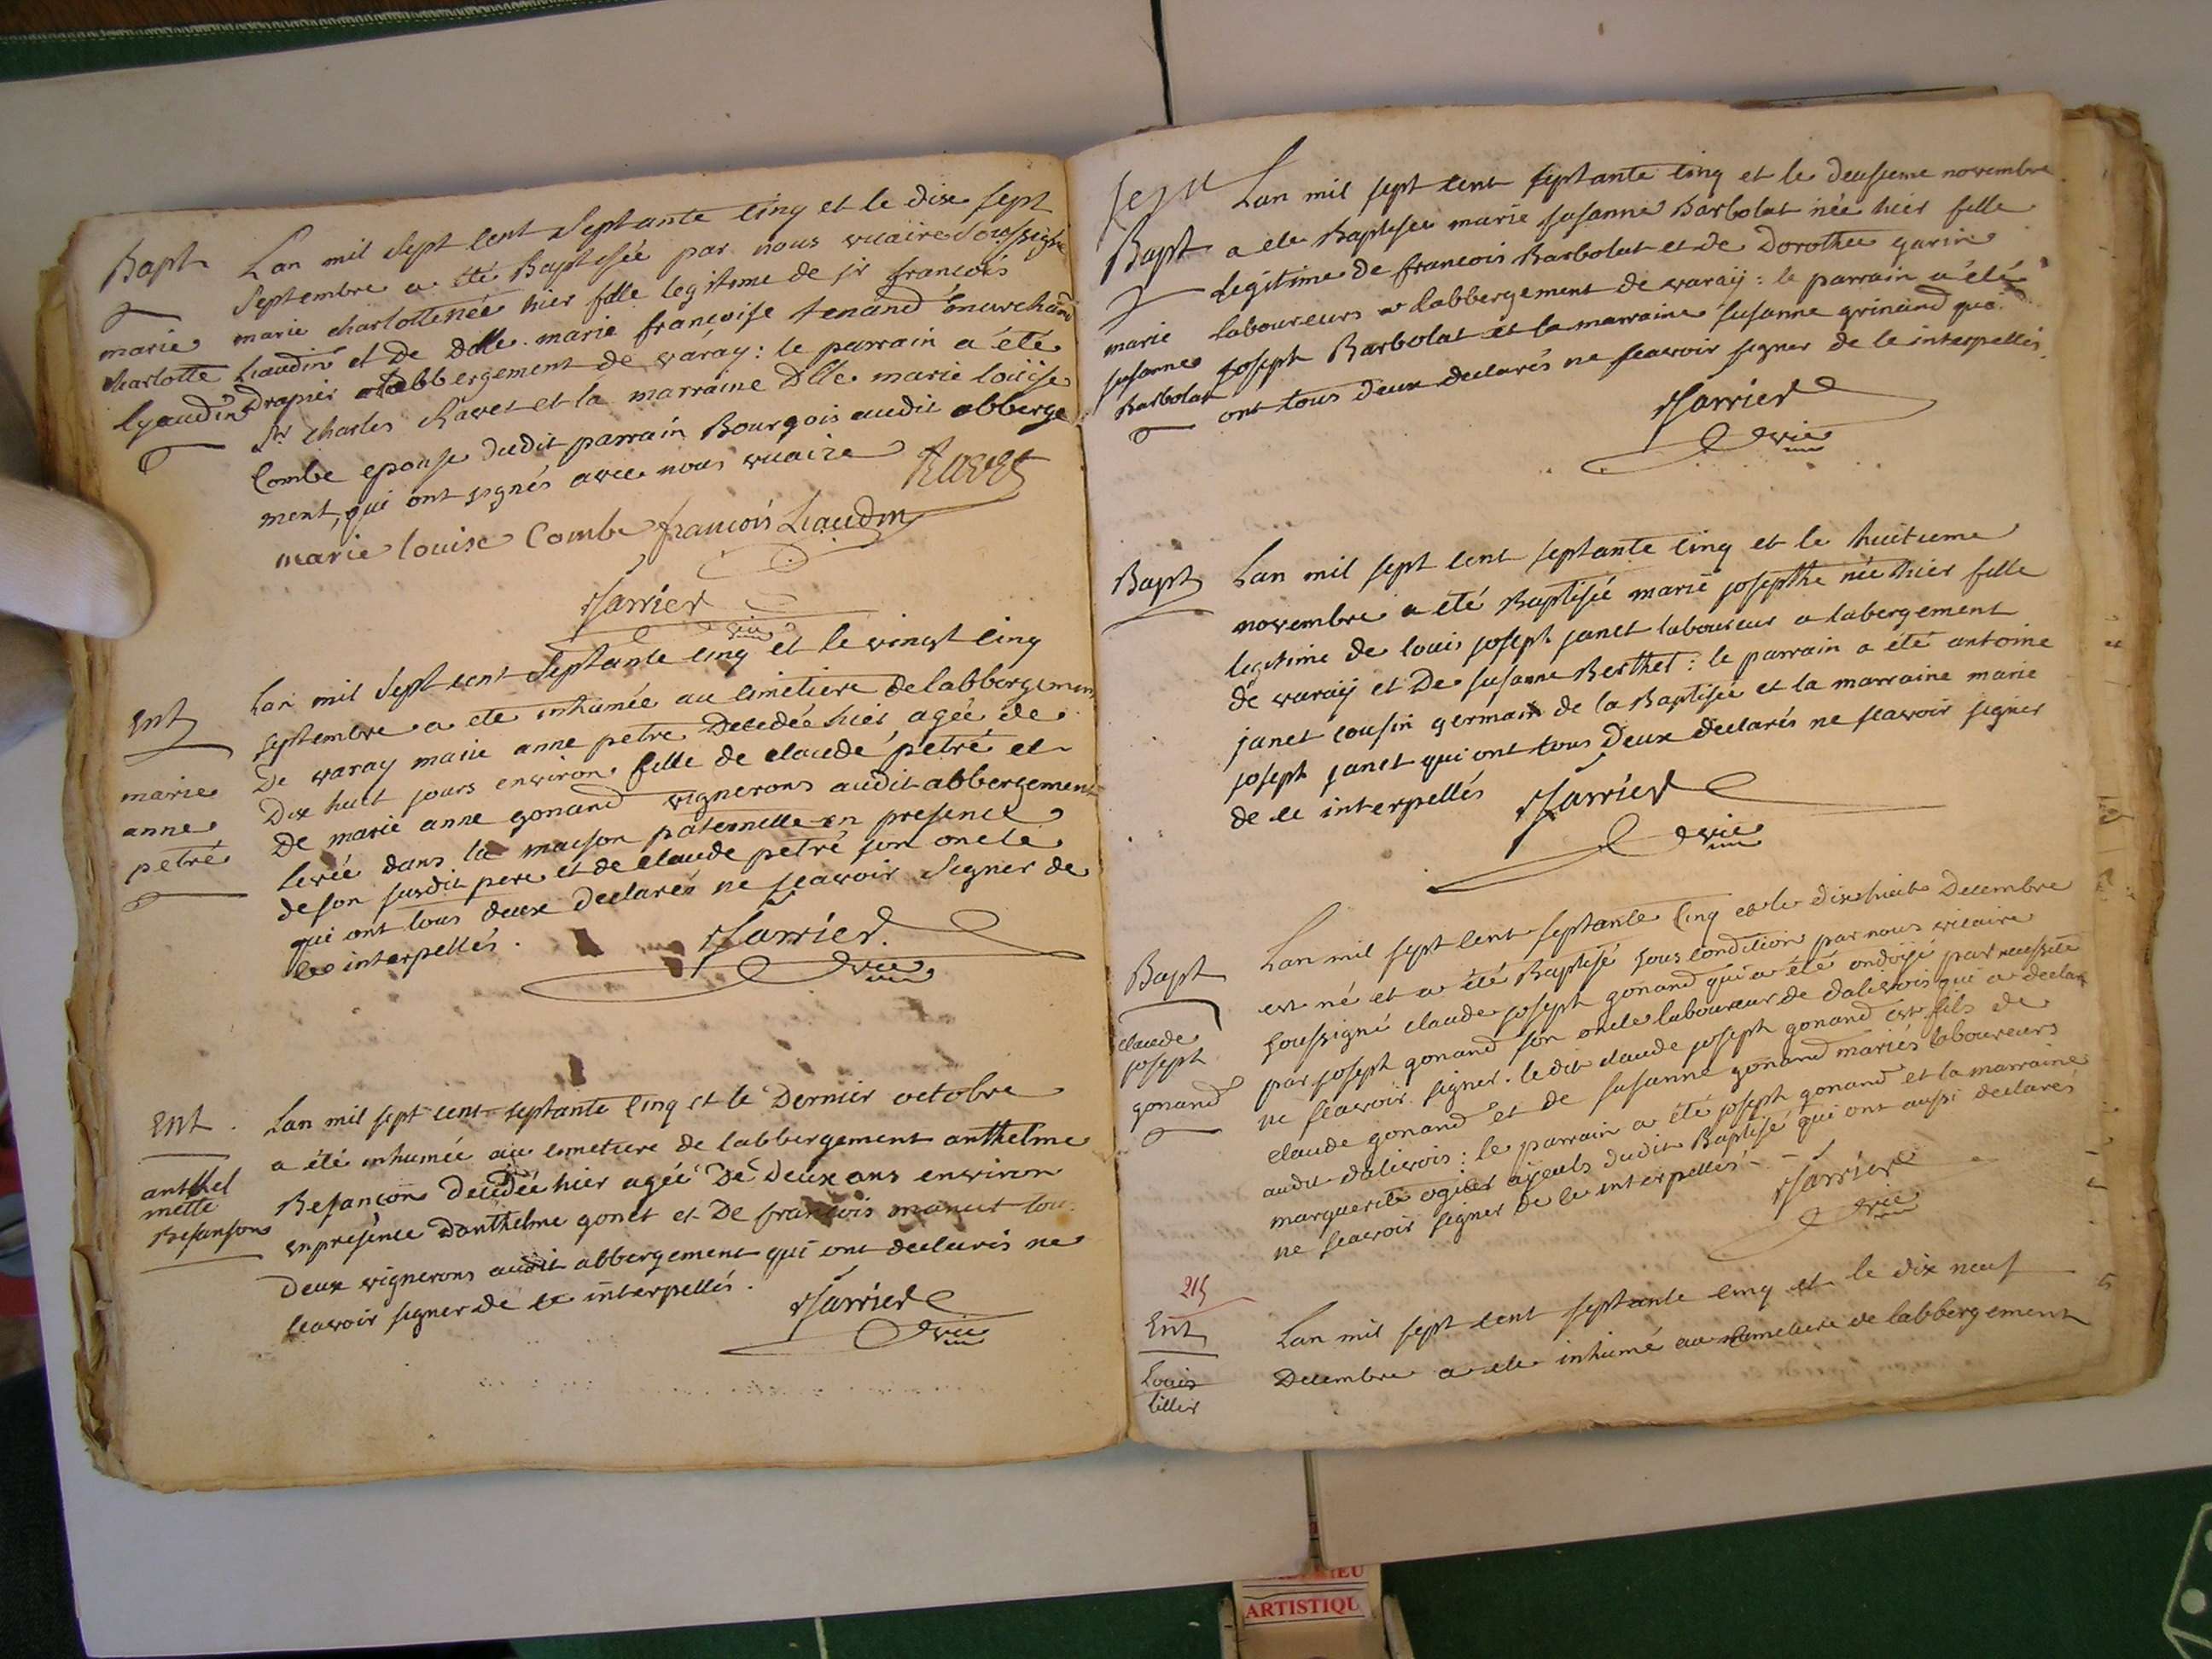 Bapt
marie
charlotte
lyaudin
Lan mil sept cent septante cinq et le dix sept
septembre a été Baptisée par nous vicaire soussigné
marie charlotte née hier fille legitime de sr francois
Liaudin et De dlle. marie francoise tenand marchand
Drapier a labbergement de varay : le parrain a été
sr charles Ravet et la marraine dlle marie louise
Combe epouse dudit parrain Bourgois audit abberge
ment, qui ont signés avec nous vicaire
Ravet
marie louise Combe francois Liaudin
Jarrier
vic
Ent
marie
anne
petré
Lan mil sept cent septante cinq et le vingt cinq
septembre a eté inhumée au cimetiere de labbergement
De varay marie anne petre Decedée hier agée de
Dix huit jours environ fille de claude petré et
De marie anne gonand vignerons audit abbergement
levée dans la maison paternelle en presence
de son susdit pere et de claude petré son oncle
qui ont tous deux declarés ne scavoir signer de
ce interpellés.
Jarrier.
vic
Ent.
anthel
mette
Besansons
Lan mil sept cent septante cinq et le Dernier octobre
a été inhumée au cimetiere de labbergement anthelme
Besançon decedée hier agée De Deux ans environ
en présence danthelme gonet et De francois manut tou
Deux vignerons audit abbergement qui ont declaris ne
scavoir signer de ce interpellés.
Jarrier
vic
Bapt
marie
susanne
Barbolat
Lan mil sept cent septante cinq et le deusieme novembre
a ete Baptisée marie susanne Barbolat née hier fille
legitime de francois Barbolat et de Dorothée garin
laboureurs a labbergement de varaÿ : le parrain a été
joseph Barbolat et la marraine susanne grinand qui
ont tous deux declarés ne scavoir signer de ce interpellés.
Jarrier
vic
Bapt
Lan mil sept cent septante cinq et le huitieme
novembre a été Baptisée marie josepthe née hier fille
legitime de louis joseph janet laboureur a labergement
de varaÿ et De susanne Berthet : le parrain a été antoine
janet cousin germain de la Baptisée et la marraine marie
joseph janet qui ont tous Deux declarés ne scavoir signer
de ce interpellés
Jarrier
vic
Bapt
claude
joseph
gonand
Lan mil sept cent septante cinq et le dix huit Decembre
est né et a été Baptisé sous condition par nous vicaire
soussigné claude joseph gonand qui a été ondoÿé par necessité
par joseph gonand son oncle laboureur de dalivois qui a declaré
ne scavoir signer. le dit claude joseph gonand est fils de
claude gonand et de susanne gonand mariés laboureurs
audit dalivois : le parrain a été joseph gonand et la marraine
marguerite ogier ajeuls dudit Baptisé qui ont aussi declarés
ne scavoir signer de ce interpellés
Jarrier
vic
215
Ent
Louis
tillier
Lan mil sept cent septante cinq et le dix neuf
Decembre a ete inhumé au cimetiere de labbergement
ARTISTIQU